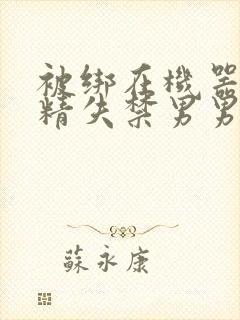 被绑在機器
精失禁男男
蘇永康